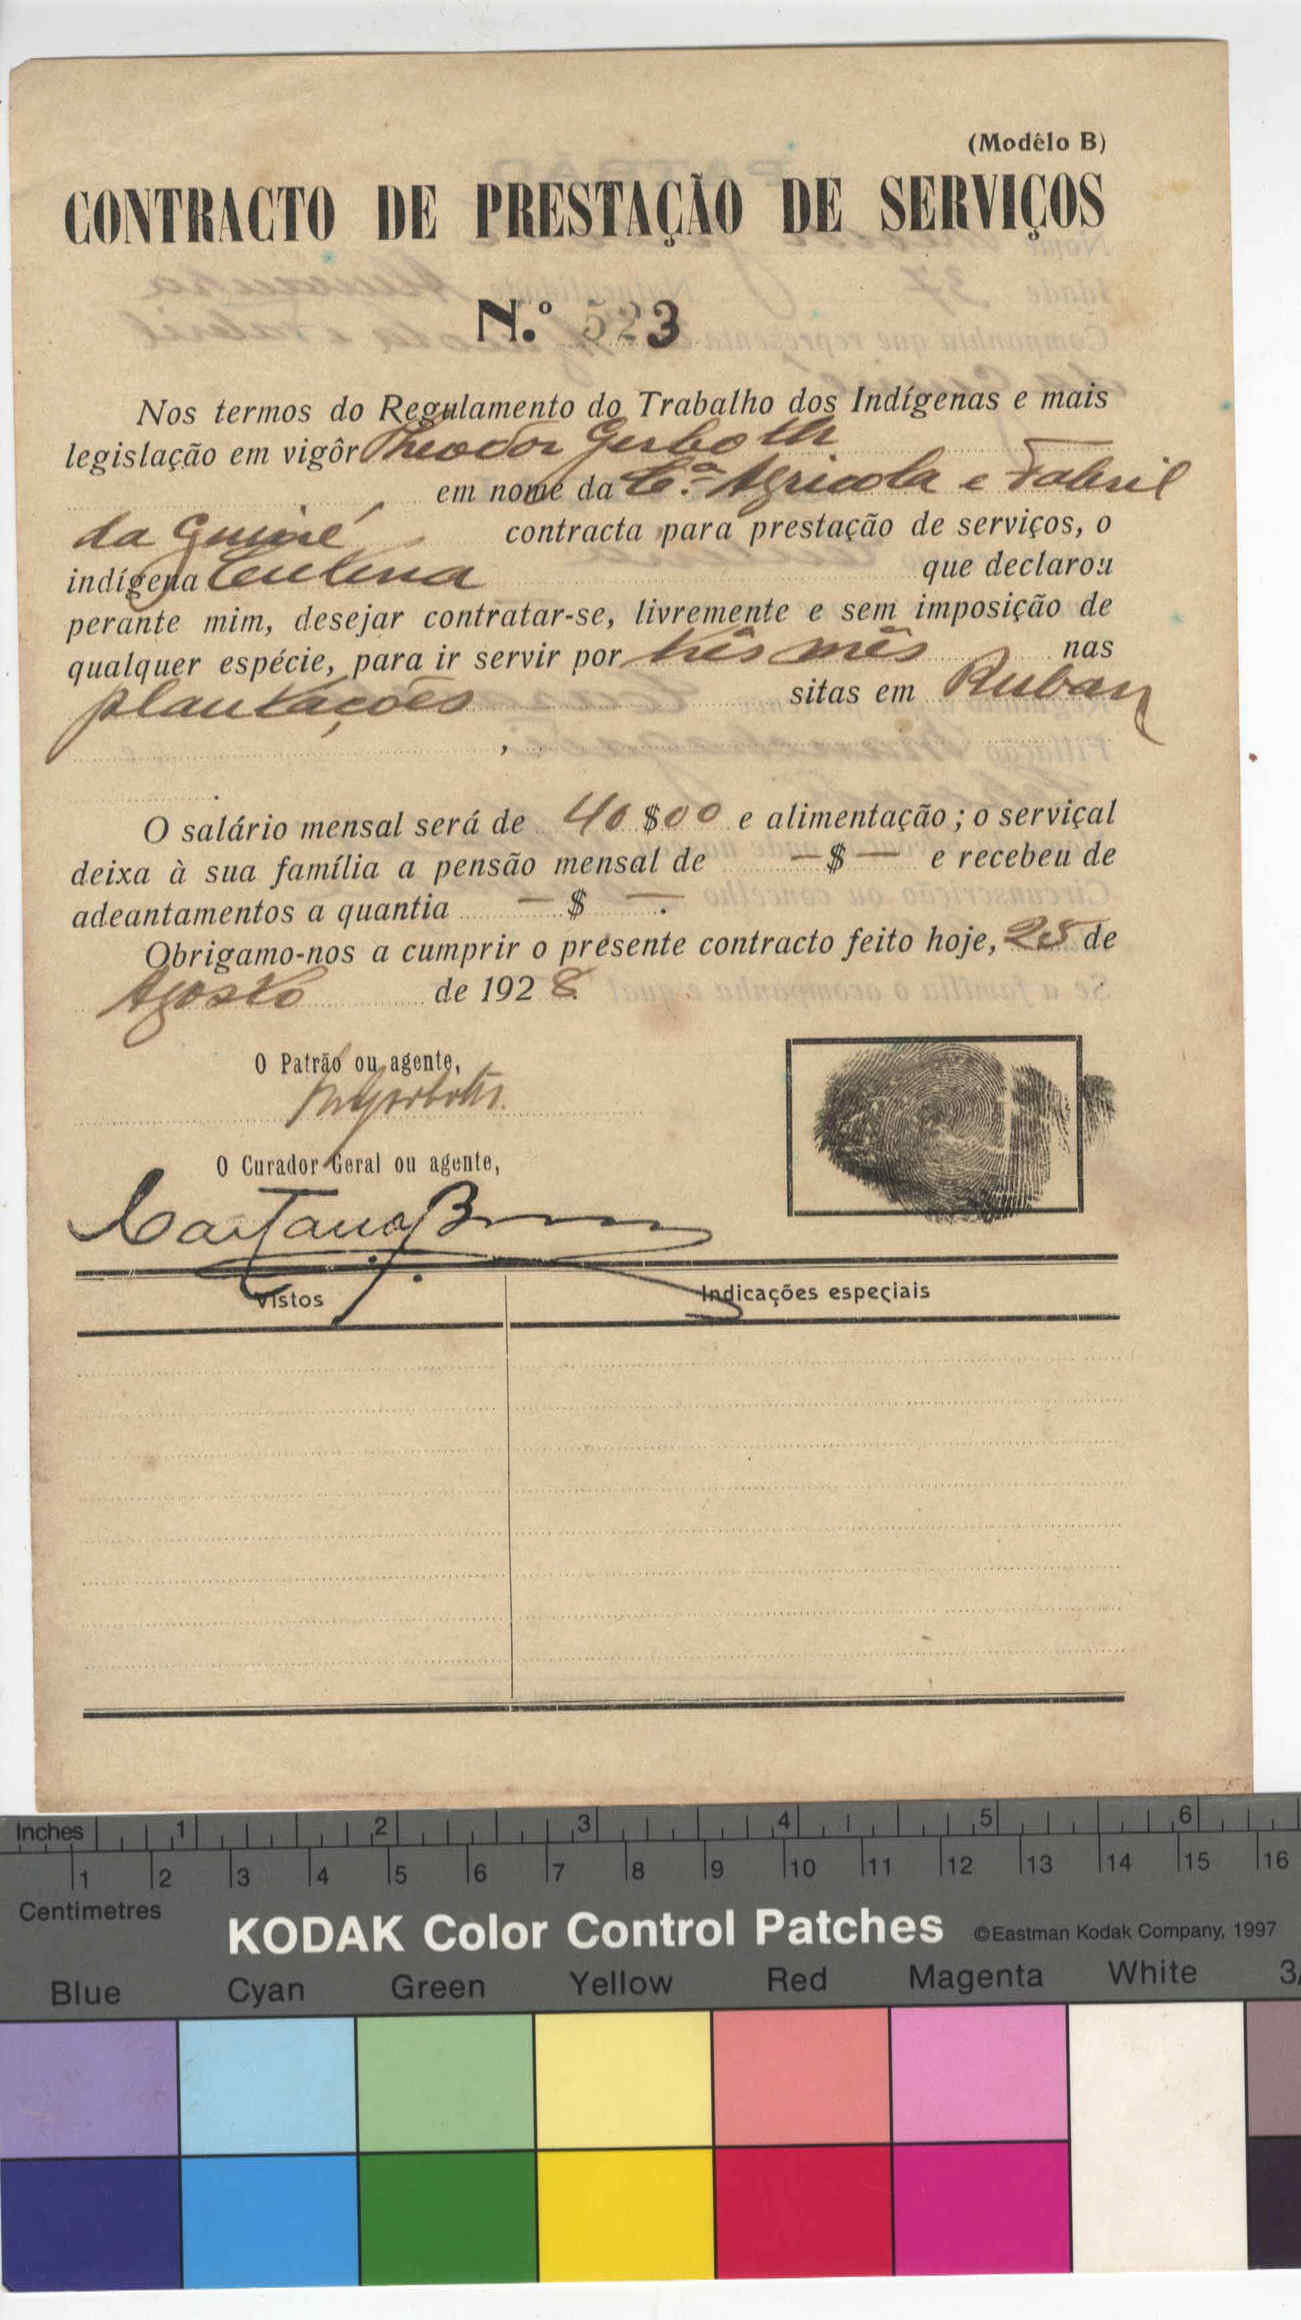 (Modêlo B)
CONTRACTO DE PRESTAÇÃO DE SERVIÇOS
N.º 523
Nos termos do Regulamento do Trabalho dos Indígenas e mais
legislação em vigôr Theodor Gerboth
em nome da C.ª Agricola e Fabril
da Guiné contracta para prestação de serviços, o
indígena que declarou
perante mim, desejar contratar-se, livremente e sem imposição de
qualquer espécie, para ir servir por três mês nas
plantações sitas em Ruban
O salário mensal será de 40$00 e alimentação; o serviçal
deixa à sua família a pensão mensal de —$— e recebeu de
adeantamentos a quantia —$—.
Obrigamo-nos a cumprir o presente contracto feito hoje, 25 de
Agosto de 1928
O Patrão ou agente,
O Curador Geral ou agente,
Caetano
Vistos Indicações especiais
Inches 1 2 3 4 5 6
1 2 3 4 5 6 7 8 9 10 11 12 13 14 15 16
Centimetres
KODAK Color Control Patches ©Eastman Kodak Company, 1997
Blue Cyan Green Yellow Red Magenta White 3/